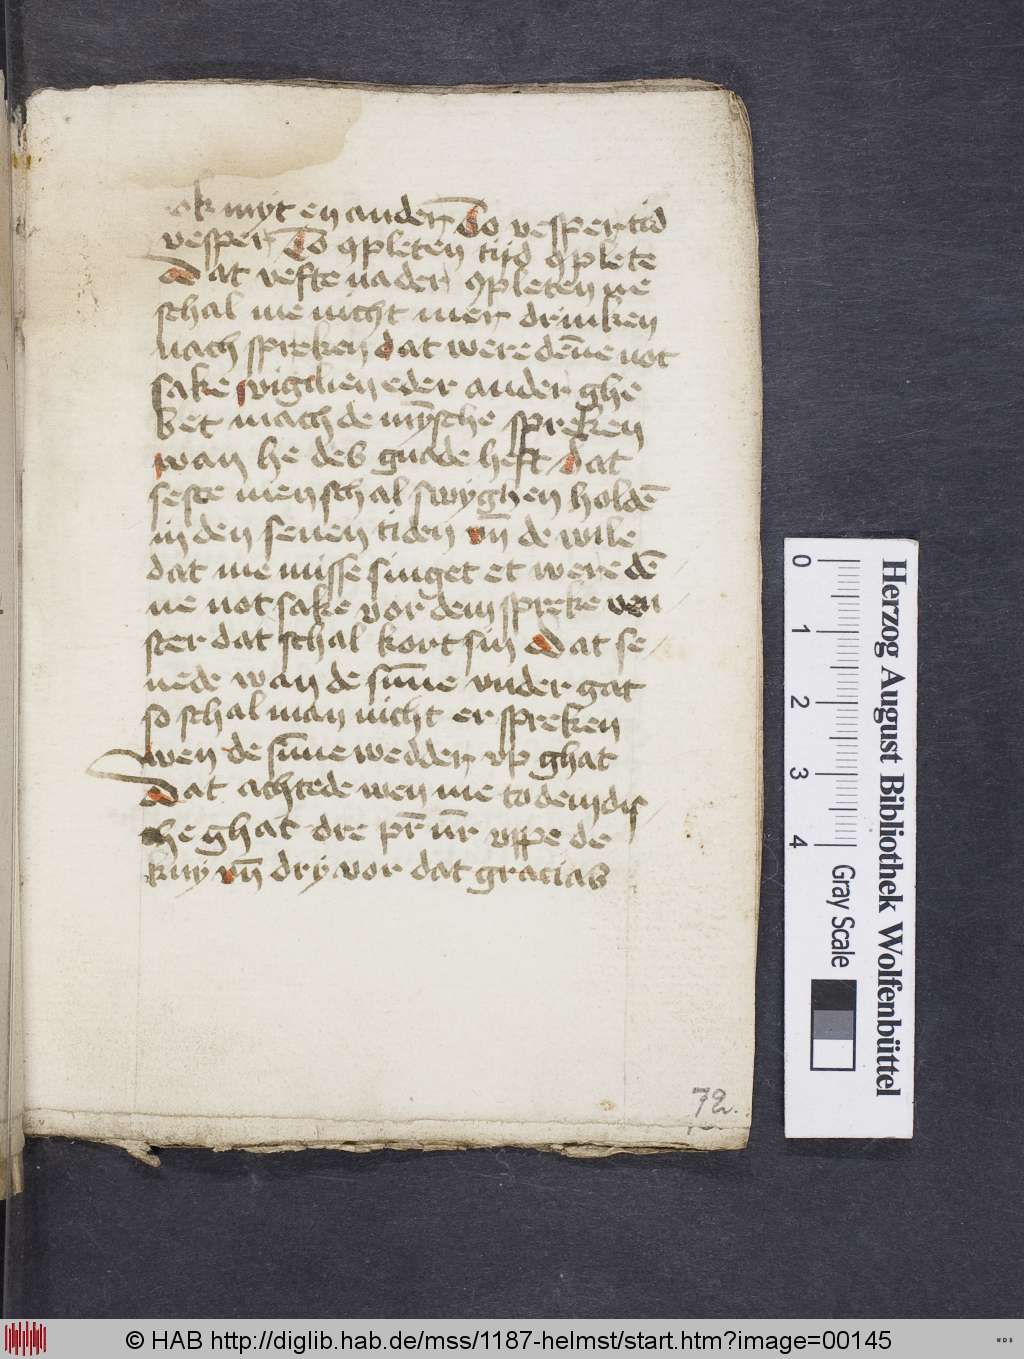 ok myt en ander To vesper tid
vesper To ꝯpleten tijd ꝯplete
Dat vefte na der ꝯpleten ne
schal me nicht mer drinken
nach spreken dat were dēne not
sake vigilien eder ander ghe
bet mach de mȳsche spreken
wan he des gnade heft dat
seste men schal swyghen holdē
in den seuen tiden vn̄ de wile
dat me misse singet et were dē
ne not sake vor dem spreke ven
ster dat schal kort sin Dat se
uede wan de sūne vnder gat
so schal man nicht er spreken
wen de sūne wedder vp ghat
Dat achtede wen me to dem dis
che ghat dre pr̄ nr̄ vppe de
kny vn̄ dry vor dat gracias
72.
0 1 2 3 4
Gray Scale
Herzog August Bibliothek Wolfenbüttel
© HAB http://diglib.hab.de/mss/1187-helmst/start.htm?image=00145